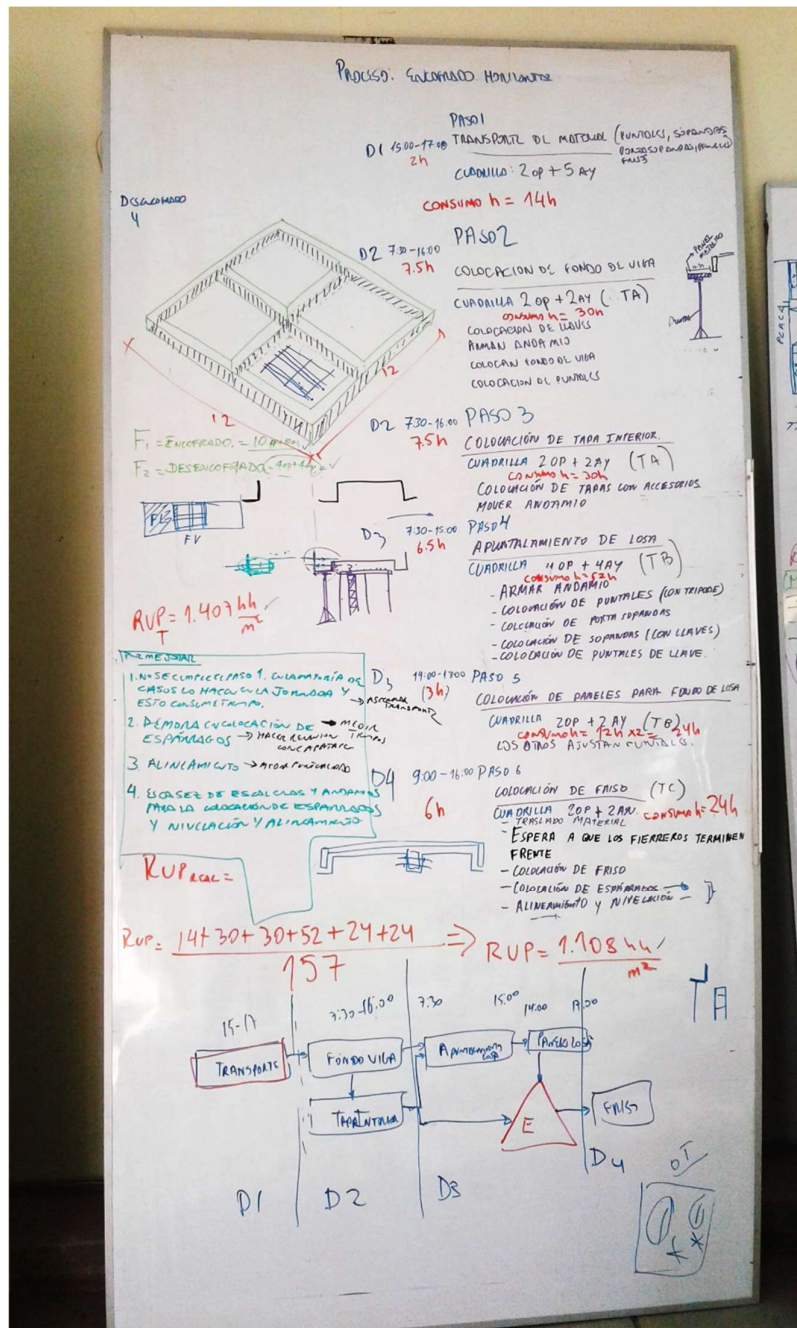 PROCESO: ENCOFRADO HORIZONTAL
PASO 1
D1 15:00-17:00 TRANSPORTE DE MATERIAL (PUNTALES, SOPANDAS
2h
CUADRILLA: 2 OP + 5 AY
CONSUMO h = 14h
DESENCOFRADO
4
D2 7:30-16:00 PASO 2
7.5h
COLOCACION DE FONDO DE VIGA
CUADRILLA 2 OP + 2 AY (TA)
CONSUMO h = 30h
COLOCACION DE LLAVES
ARMAN ANDAMIO
COLOCAN FONDO DE VIGA
COLOCACION DE PUNTALES
PANEL
12
12
D2 7:30-16:00 PASO 3
7.5h
COLOCACIÓN DE TAPA INTERIOR.
CUADRILLA 2 OP + 2 AY (TA)
CONSUMO h = 30h
COLOCACIÓN DE TAPAS CON ACCESORIOS
MOVER ANDAMIO
F1 = ENCOFRADO. = 10
F2 = DESENCOFRADO.
FV
D3 7:30-15:00 PASO 4
6.5h
APUNTALAMIENTO DE LOSA
CUADRILLA 4 OP + 4 AY (TB)
CONSUMO h = 52h
- ARMAR ANDAMIO
- COLOCACIÓN DE PUNTALES (CON TRIPODE)
- COLOCACIÓN DE PORTA SOPANDAS
- COLOCACIÓN DE SOPANDAS (CON LLAVES)
- COLOCACIÓN DE PUNTALES DE LLAVE.
RUP T = 1.407 hh/m²
1. NO SE CUMPLE EL PASO 1. EN LA MAYORÍA DE
CASOS LO HACEN EN LA JORNADA Y
ESTO CONSUME TIEMPO.
2. DEMORA EN COLOCACIÓN DE → MEDIR
ESPÁRRAGOS → HACER REUNION TIEMPOS
CON CAPATAZ
3. ALINEAMIENTO →
4. ESCASEZ DE ESCALERAS Y ANDAMIOS
PARA LA COLOCACION DE ESPARRAGOS
Y NIVELACIÓN Y ALINEAMIENTO
D3 14:00-17:00 PASO 5
(3h)
COLOCACIÓN DE PANELES PARA FONDO DE LOSA
CUADRILLA 2 OP + 2 AY (TB)
CONSUMO h = 12h x2 = 24h
LOS OTROS AJUSTAN PUNTALES.
D4 9:00-16:00 PASO 6
6h
COLOCACIÓN DE FRISO (TC)
CUADRILLA 2 OP + 2 AY. CONSUMO h = 24h
- TRASLADO MATERIAL
- ESPERA A QUE LOS FIERREROS TERMINEN
FRENTE
- COLOCACIÓN DE FRISO
- COLOCACIÓN DE ESPÁRRAGOS
- ALINEAMIENTO Y NIVELACIÓN
RUP REAL =
RUP = 14+30+30+52+24+24 / 157 ⇒ RUP = 1.108 hh/m²
15-17 7:30-16:00 7:30 15:00 14:00 17:00
TRANSPORTE FONDO VIGA APUNTALAMIENTO LOSA PANELES LOSA
TAPA INTERIOR E FRISO
D1 D2 D3 D4